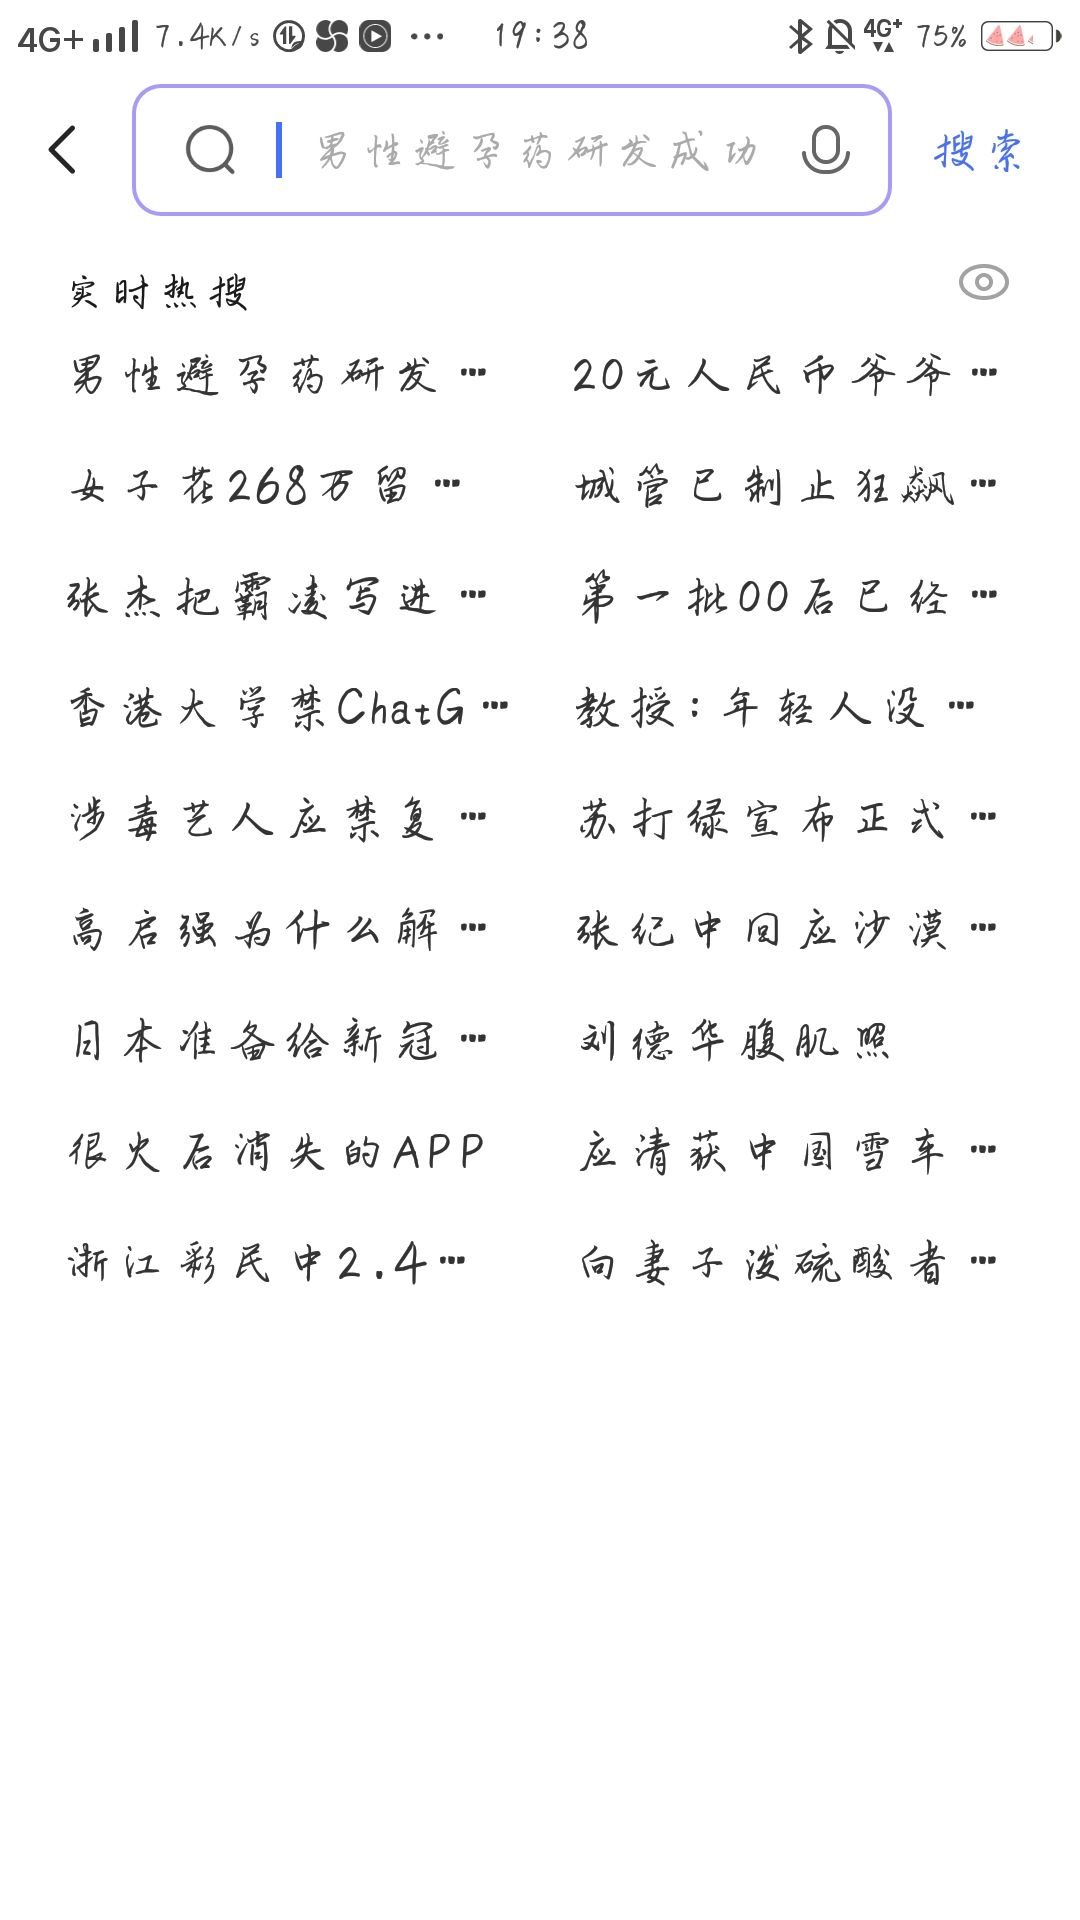 4G+ 7.4K/s ... 19:38 4G+ 75%
男性避孕药研发成功 搜索
实时热搜
男性避孕药研发... 20元人民币爷爷...
女子花268万留... 城管已制止狂飙...
张杰把霸凌写进... 第一批00后已经...
香港大学禁ChatG... 教授:年轻人没...
涉毒艺人应禁复... 苏打绿宣布正式...
高启强为什么解... 张纪中回应沙漠...
日本准备给新冠... 刘德华腹肌照
很火后消失的APP 应清获中国雪车...
浙江彩民中2.4... 向妻子泼硫酸者...